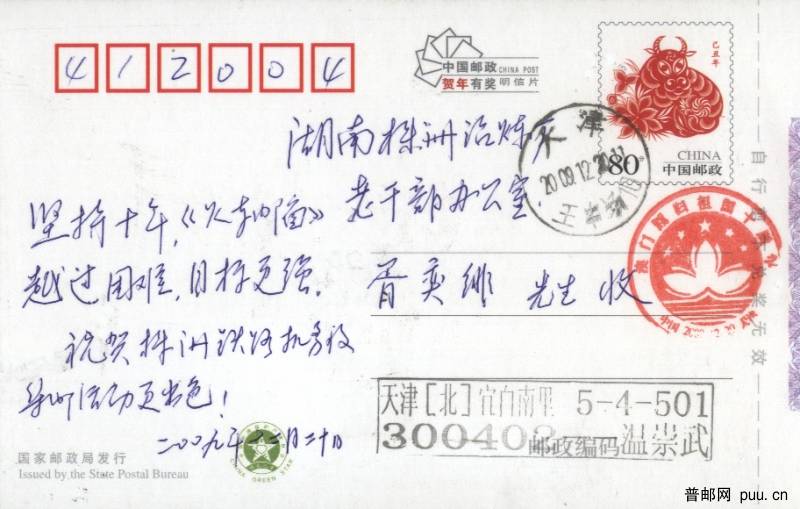 412004
中国邮政 CHINA POST
贺年有奖 明信片
己丑年
80分
CHINA
中国邮政
天津
2009.12.20.11
湖南株洲冶炼厂
老干部办公室
先生 收
坚持十年，《火车封面》
越过困难，目标更强。
祝贺株洲铁路机务段
活动更出色！
二〇〇九年十二月二十日
自行
奖无效
门回归祖国
中国 20 天津
天津〔北〕宜白南里 5-4-501
300402 邮政编码 温崇武
国家邮政局发行
Issued by the State Postal Bureau
CHINA GREEN STAR
普邮网 puu.cn